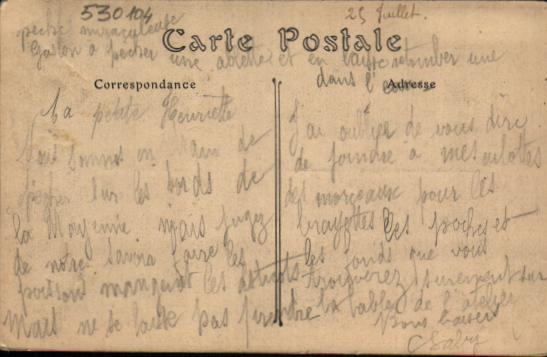 530104
25 Juillet.
peche miraculeuse
Gaston a pecher une ablette et en laisse retomber une
dans l'eau
Carte Postale
Correspondance
Adresse
La petite Henriette
Nous sommes en train de
pecher sur les bords de
la Mayenne mais jugez
de notre savoir faire les
poissons mangent les asticots
Mais ne se laisse pas prendre
J'ai oublier de vous dire
de joindre à mes culottes
des morceaux pour les
brayettes les poches et
les fonds que vous
trouverez surement sur
la table de l'atelier
Bons baisers